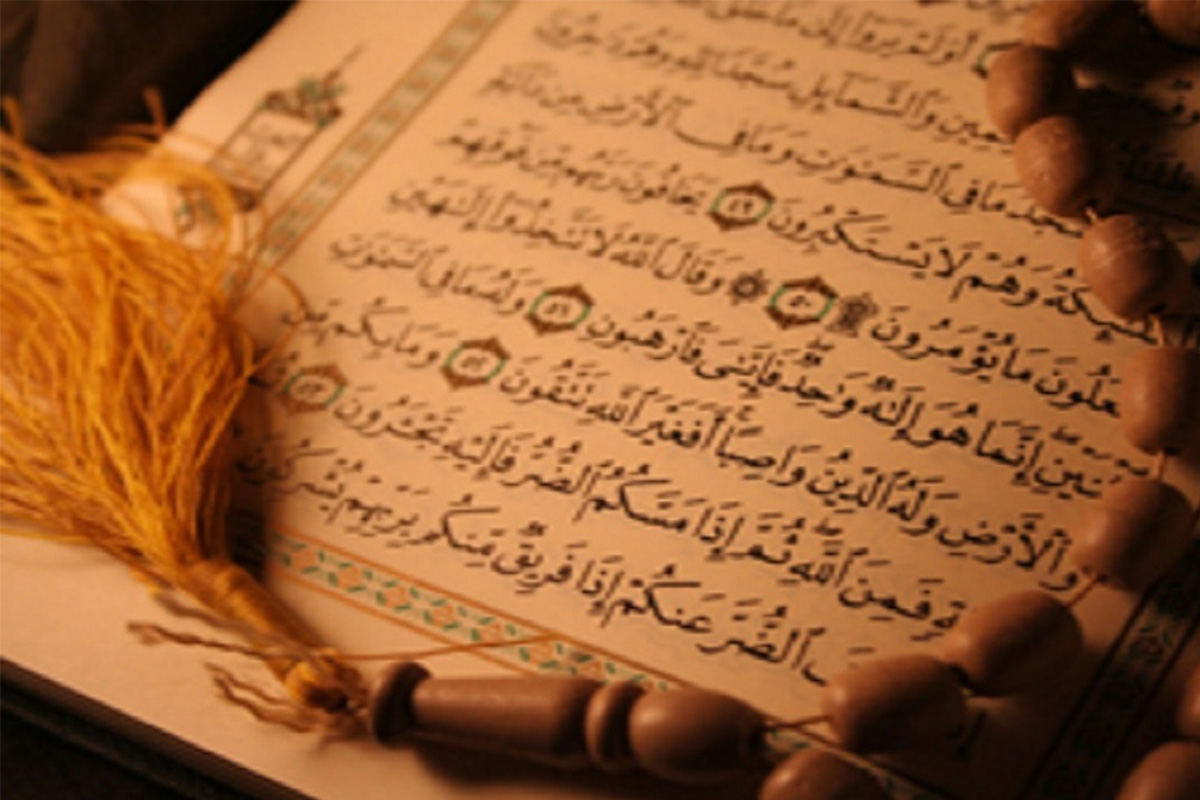 أَوَلَمْ يَرَوْا۟ إِلَىٰ مَا
وَٱلشَّمَآئِلِ سُجَّدًا لِّلَّهِ وَهُمْ
مَا فِى ٱلسَّمَٰوَٰتِ وَمَا فِى ٱلْأَرْضِ مِن دَآبَّةٍ
وَهُمْ لَا يَسْتَكْبِرُونَ ٤٩ يَخَافُونَ رَبَّهُم مِّن فَوْقِهِمْ
مَا يُؤْمَرُونَ ۩ ٥٠ ۞ وَقَالَ ٱللَّهُ لَا تَتَّخِذُوٓا۟ إِلَٰهَيْنِ
إِنَّمَا هُوَ إِلَٰهٌ وَٰحِدٌ فَإِيَّٰىَ فَٱرْهَبُونِ ٥١ وَلَهُۥ مَا فِى ٱلسَّمَٰوَٰتِ
وَٱلْأَرْضِ وَلَهُ ٱلدِّينُ وَاصِبًا أَفَغَيْرَ ٱللَّهِ تَتَّقُونَ ٥٢ وَمَا بِكُم مِّن
فَمِنَ ٱللَّهِ ثُمَّ إِذَا مَسَّكُمُ ٱلضُّرُّ فَإِلَيْهِ تَجْـَٔرُونَ ٥٣
ٱلضُّرَّ عَنكُمْ إِذَا فَرِيقٌ مِّنكُم بِرَبِّهِمْ يُشْرِكُونَ